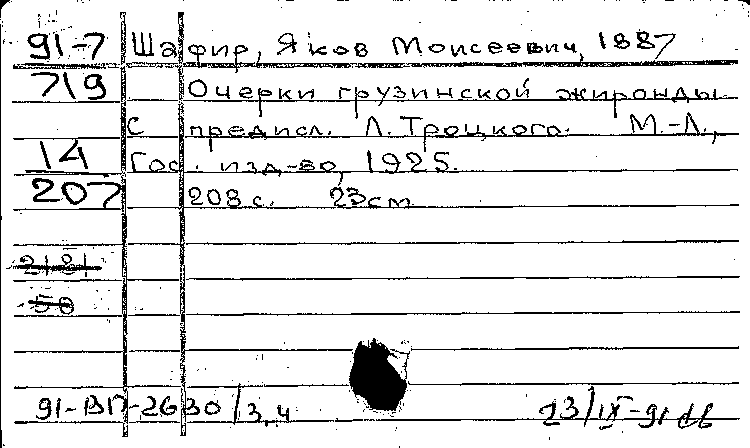 91-7 Шафир, Яков Моисеевич, 1887
719 Очерки грузинской жиронды
с предисл. Л. Троцкого. М.-Л.,
14 Гос. изд-во, 1925.
207 208 с. 23 см
2181
50
91-ВП-2630/3,4 23/IX-91